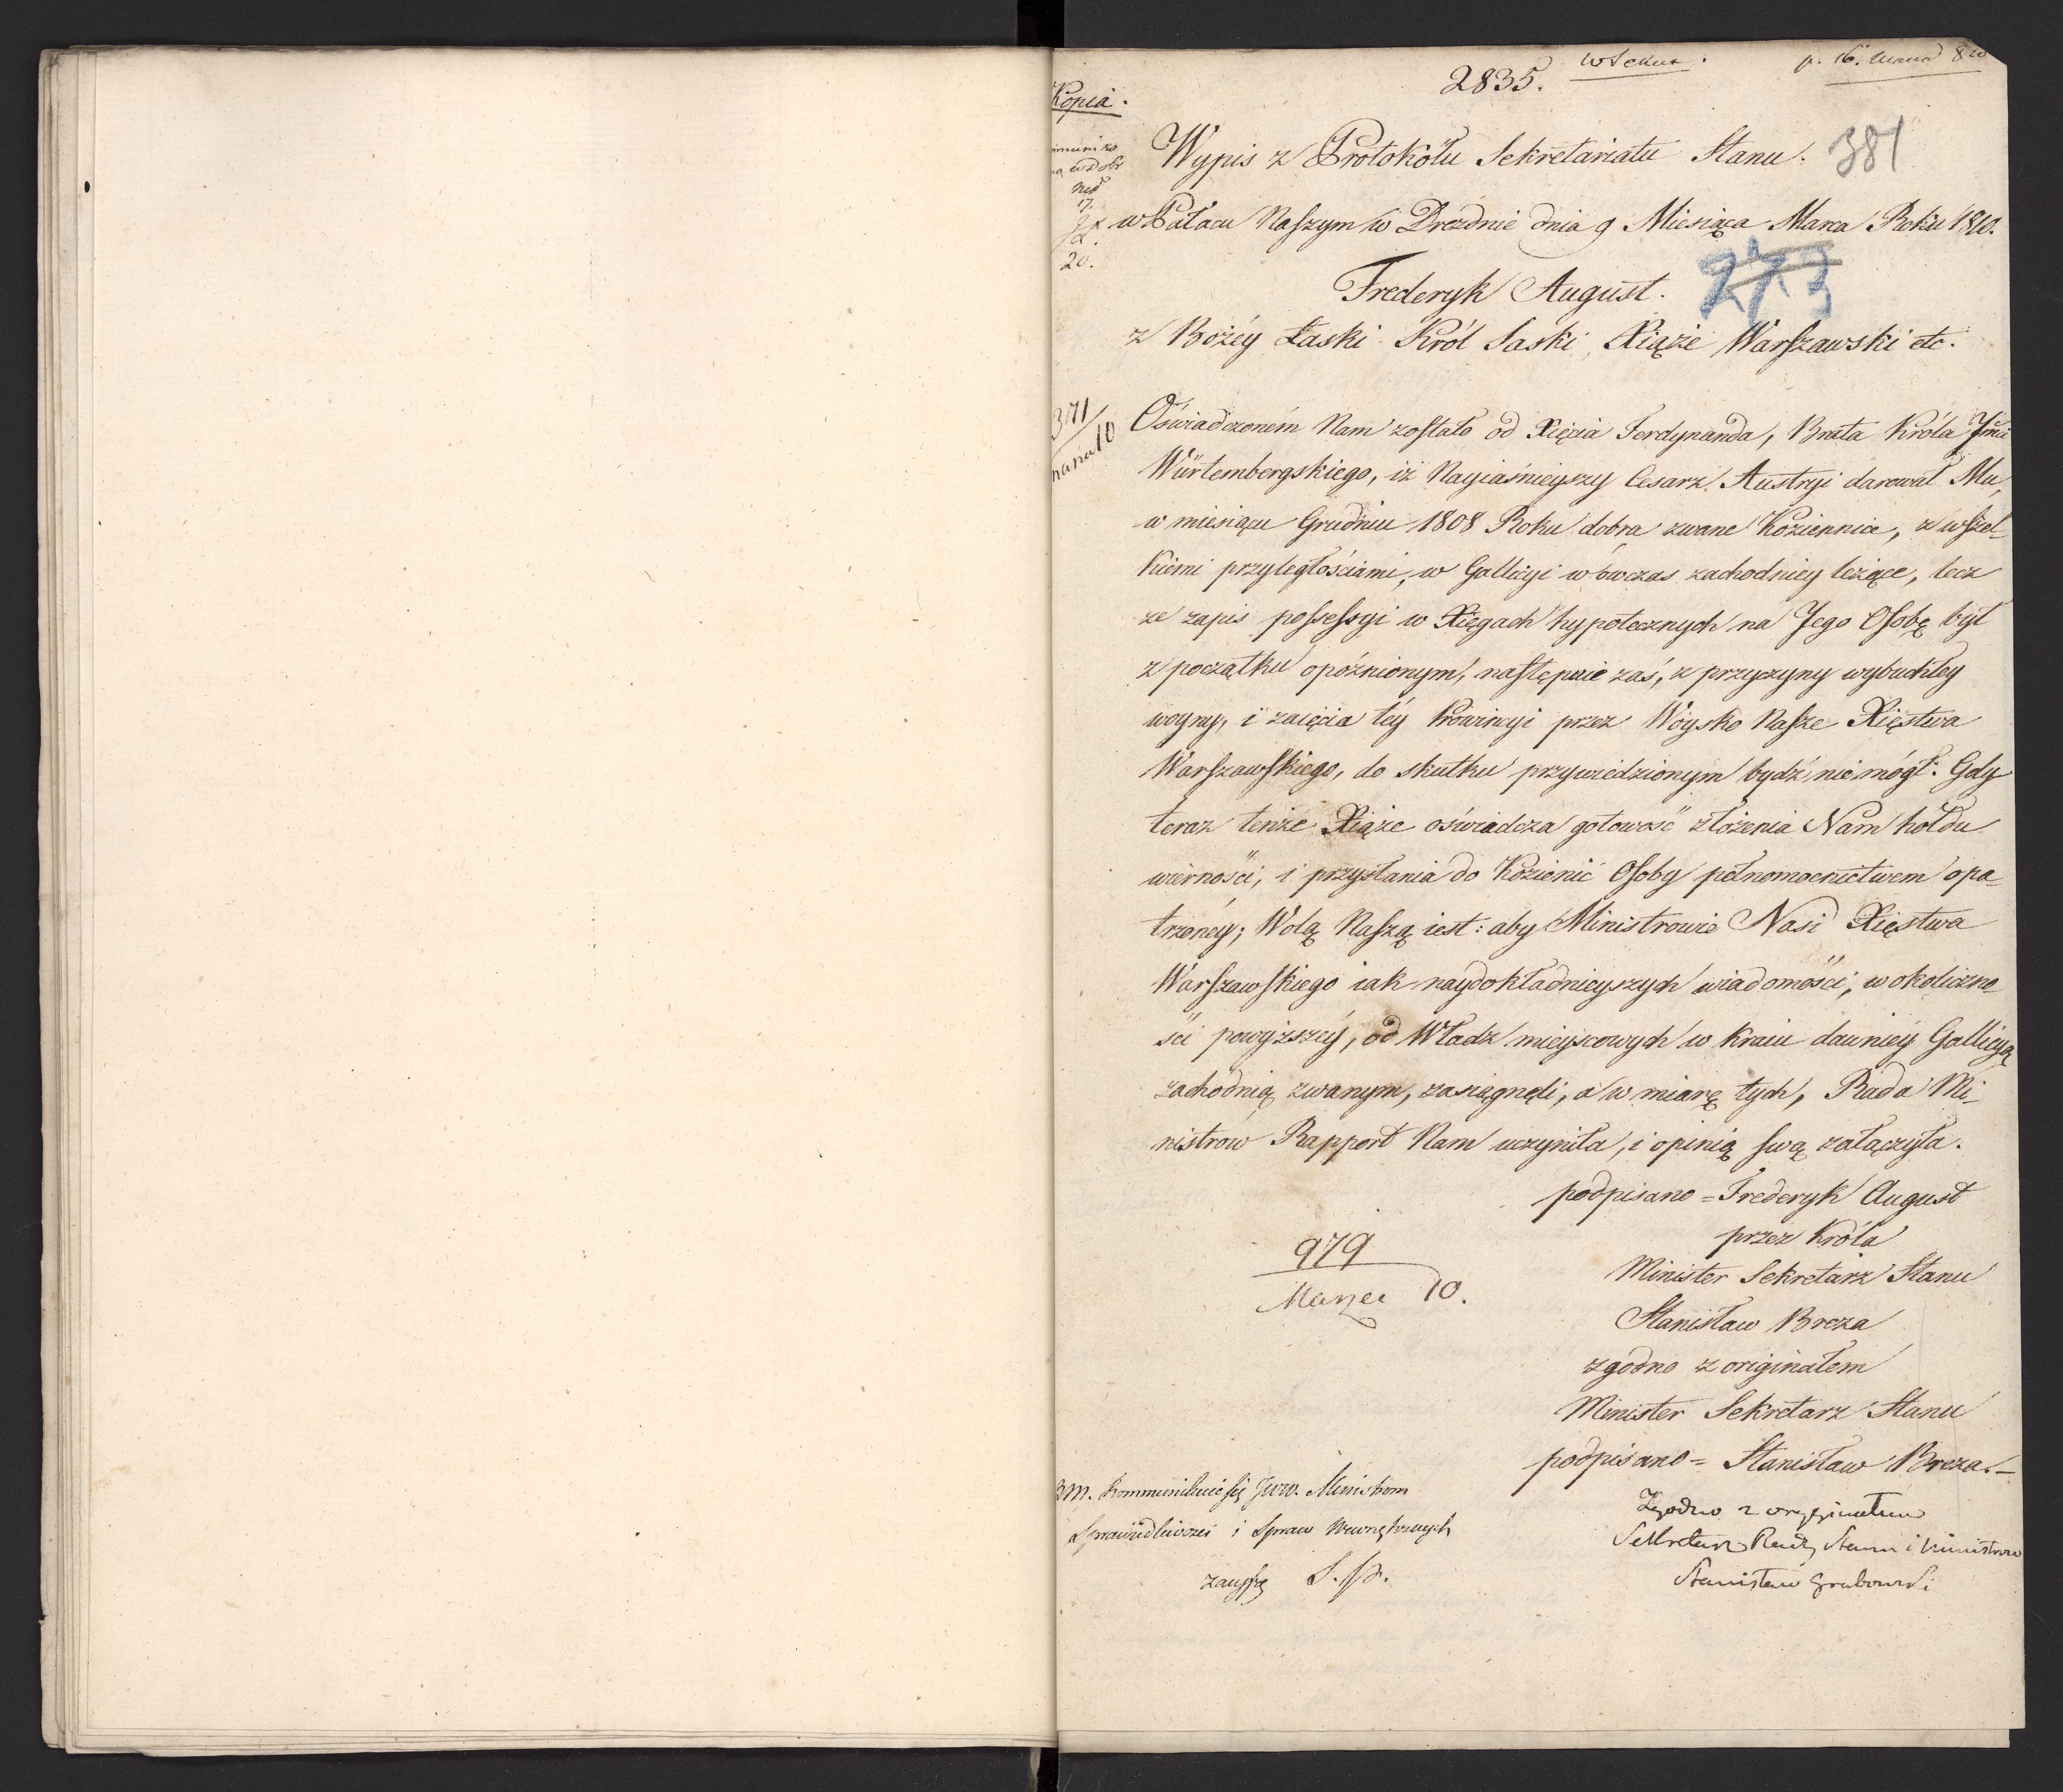 2835.
p. 16. Marca 810
Kopia.
Wypis z Protokołu Sekretariatu Stanu.
381
w Pałacu Naszym w Dreznie dnia 9 Miesiąca Marca Roku 1810.
20.
273
Frederyk August.
z Bożéy Łaski Król Saski, Xiąże Warszawski etc.
371
10
Oświadczoném Nam zostało od Xięcia Ferdynanda, Brata Króla Jmci
Würtembergskiego, iż Nayiaśnieyszy Cesarz Austryi darował Mu,
w miesiącu Grudniu 1808 Roku dobra zwane Koziennice, z wszel-
kiemi przyległościami, w Gallicyi wówczas zachodniey leżące, lecz
że zapis possessyi w Xięgach hypotecznych na Jego Osobę był
z początku opóźnionym, następnie zaś, z przyczyny wybuchłey
woyny, i zaięcia téy Prowincyi przez Woysko Nasze Xięstwa
Warszawskiego, do skutku przywiedzionym bydź nie mógł. Gdy
teraz tenże Xiąże oświadcza gotowość złożenia Nam hołdu
wierności, i przysłania do Kozienic Osoby pełnomocnictwem opa-
trzonéy; Wolą Naszą iest: aby Ministrowie Nasi Xięstwa
Warszawskiego iak naydokładnieyszych wiadomości, w okoliczno-
ści powyższéy, od Władz mieyscowych w kraiu dawniéy Gallicyą
zachodnią zwanym, zasiągnęli, a w miarę tych, Rada Mi-
nistrów Rapport Nam uczyniła, i opinią swą załączyła.
podpisano = Frederyk August
przez Króla
Minister Sekretarz Stanu
Stanisław Breza
zgodno z originałem
Minister Sekretarz Stanu
podpisano = Stanisław Breza.
979
Marzec 10.
Kommunikuie się Jww. Ministrom
Sprawiedliwości i Spraw Wewnętrznych
Zgodno z oryginałem
Sekretarz Rady Stanu i Ministrów
Stanisław Grabowski